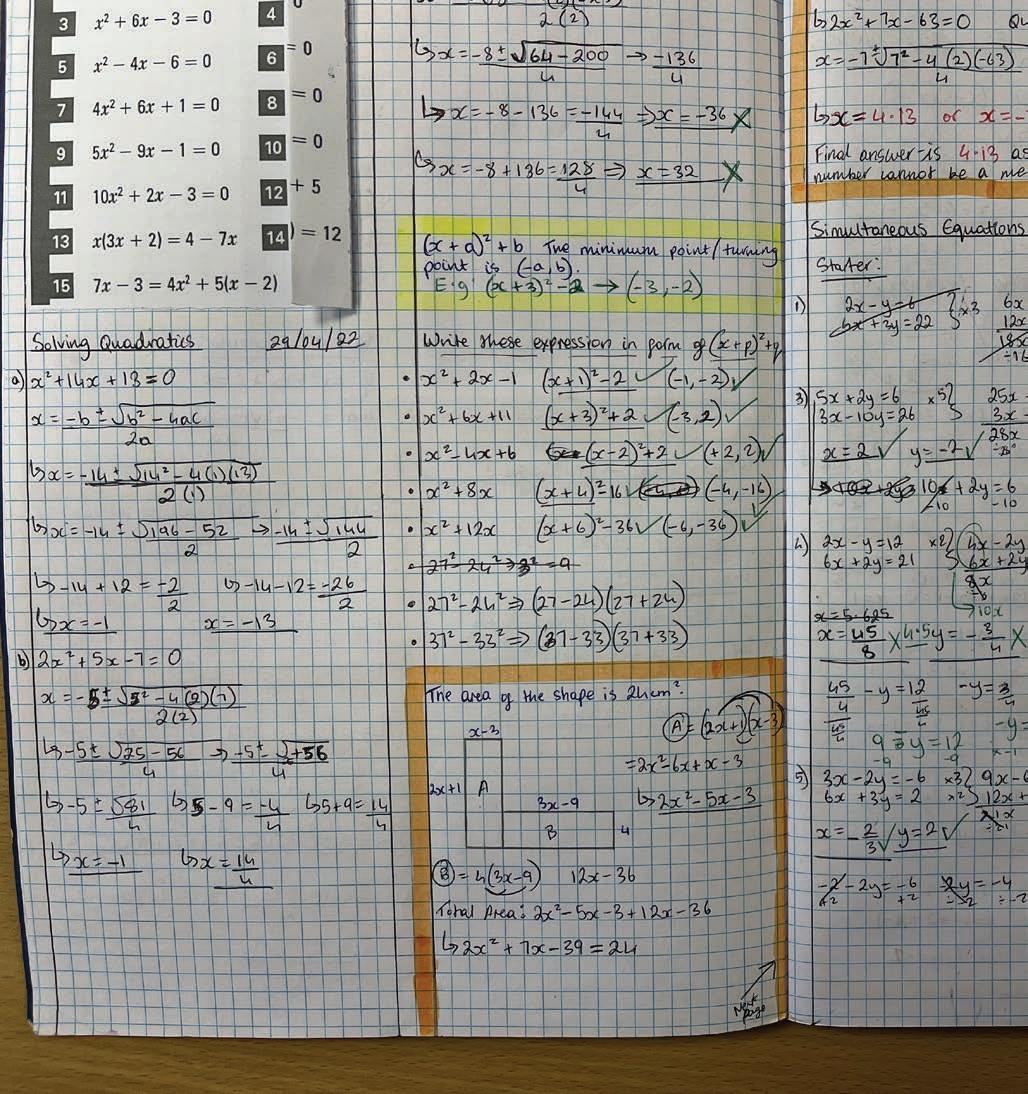 3 x² + 6x − 3 = 0
4
5 x² − 4x − 6 = 0
6 = 0
7 4x² + 6x + 1 = 0
8 = 0
9 5x² − 9x − 1 = 0
10 = 0
11 10x² + 2x − 3 = 0
12 + 5
13 x(3x + 2) = 4 − 7x
14 ) = 12
15 7x − 3 = 4x² + 5(x − 2)
Solving Quadratics 29/04/22
a) x² + 14x + 13 = 0
x = -b ± √b² - 4ac / 2a
↳ x = -14 ± √14² - 4(1)(13) / 2(1)
↳ x = -14 ± √196 - 52 / 2 → -14 ± √144 / 2
↳ -14 + 12 = -2/2 ↳ -14 - 12 = -26/2
↳ x = -1 x = -13
b) 2x² + 5x - 7 = 0
x = -5 ± √5² - 4(2)(7) / 2(2)
↳ -5 ± √25 - 56 / 4 → -5 ± √+56 / 4
↳ -5 ± √81 / 4 ↳ 5 - 9 = -4/4 ↳ 5 + 9 = 14/4
↳ x = -1 ↳ x = 14/4
2(2)
↳ x = -8 ± √64 - 200 / 4 → -136/4
↳ x = -8 - 136 = -144/4 ⇒ x = -36 ✗
↳ x = -8 + 136 = 128/4 ⇒ x = 32 ✗
(x + a)² + b The minimum point/turning
point is (-a, b).
E.g: (x + 3)² - 2 → (-3, -2)
Write these expression in form of (x + p)² + q
• x² + 2x - 1 (x + 1)² - 2 ✓ (-1, -2) ✓
• x² + 6x + 11 (x + 3)² + 2 ✓ (-3, 2) ✓
• x² - 4x + 6 (x - 2)² + 2 ✓ (+2, 2) ✓
• x² + 8x (x + 4)² - 16 ✓ (-4, -16) ✓
• x² + 12x (x + 6)² - 36 ✓ (-6, -36) ✓
• 27² - 24² ⇒ 3² = 9
• 27² - 24² ⇒ (27 - 24)(27 + 24)
• 37² - 33² ⇒ (37 - 33)(37 + 33)
The area of the shape is 24cm².
x - 3
2x + 1 A
3x - 9
B 4
A = (2x + 1)(x - 3)
= 2x² - 6x + x - 3
↳ 2x² - 5x - 3
B = 4(3x - 9) 12x - 36
Total Area: 2x² - 5x - 3 + 12x - 36
↳ 2x² + 7x - 39 = 24
Next page
↳ 2x² + 7x - 63 = 0
x = -7 ± √7² - 4(2)(-63) / 4
↳ x = 4.13 or x = -
Final answer is 4.13 as
number cannot be a
Simultaneous Equations
Starter:
1) 2x - y = 6 } ×3 6x
6x + 3y = 22 12x
18x
3) 5x + 2y = 6 ×5 } 25x
3x - 10y = 26 3x -
28x
x = 2 ✓ y = -2 ✓
10x + 2y = 6
-10 -10
4) 2x - y = 12 ×2 } 4x - 2y
6x + 2y = 21 6x + 2y
8x
10x
x = 5.625
x = 45/8 ✗ 4.5 y = -3/4 ✗
45/4 - y = 12
45/4 45/4
9 - y = 12
-9 -9
-y =
5) 3x - 2y = -6 ×3 } 9x - 6
6x + 3y = 2 ×2 } 12x +
21x
x = -2/3 ✓ y = 2 ✓
-2 - 2y = -6 -2y = -4
+2 +2 ÷-2 ÷-2